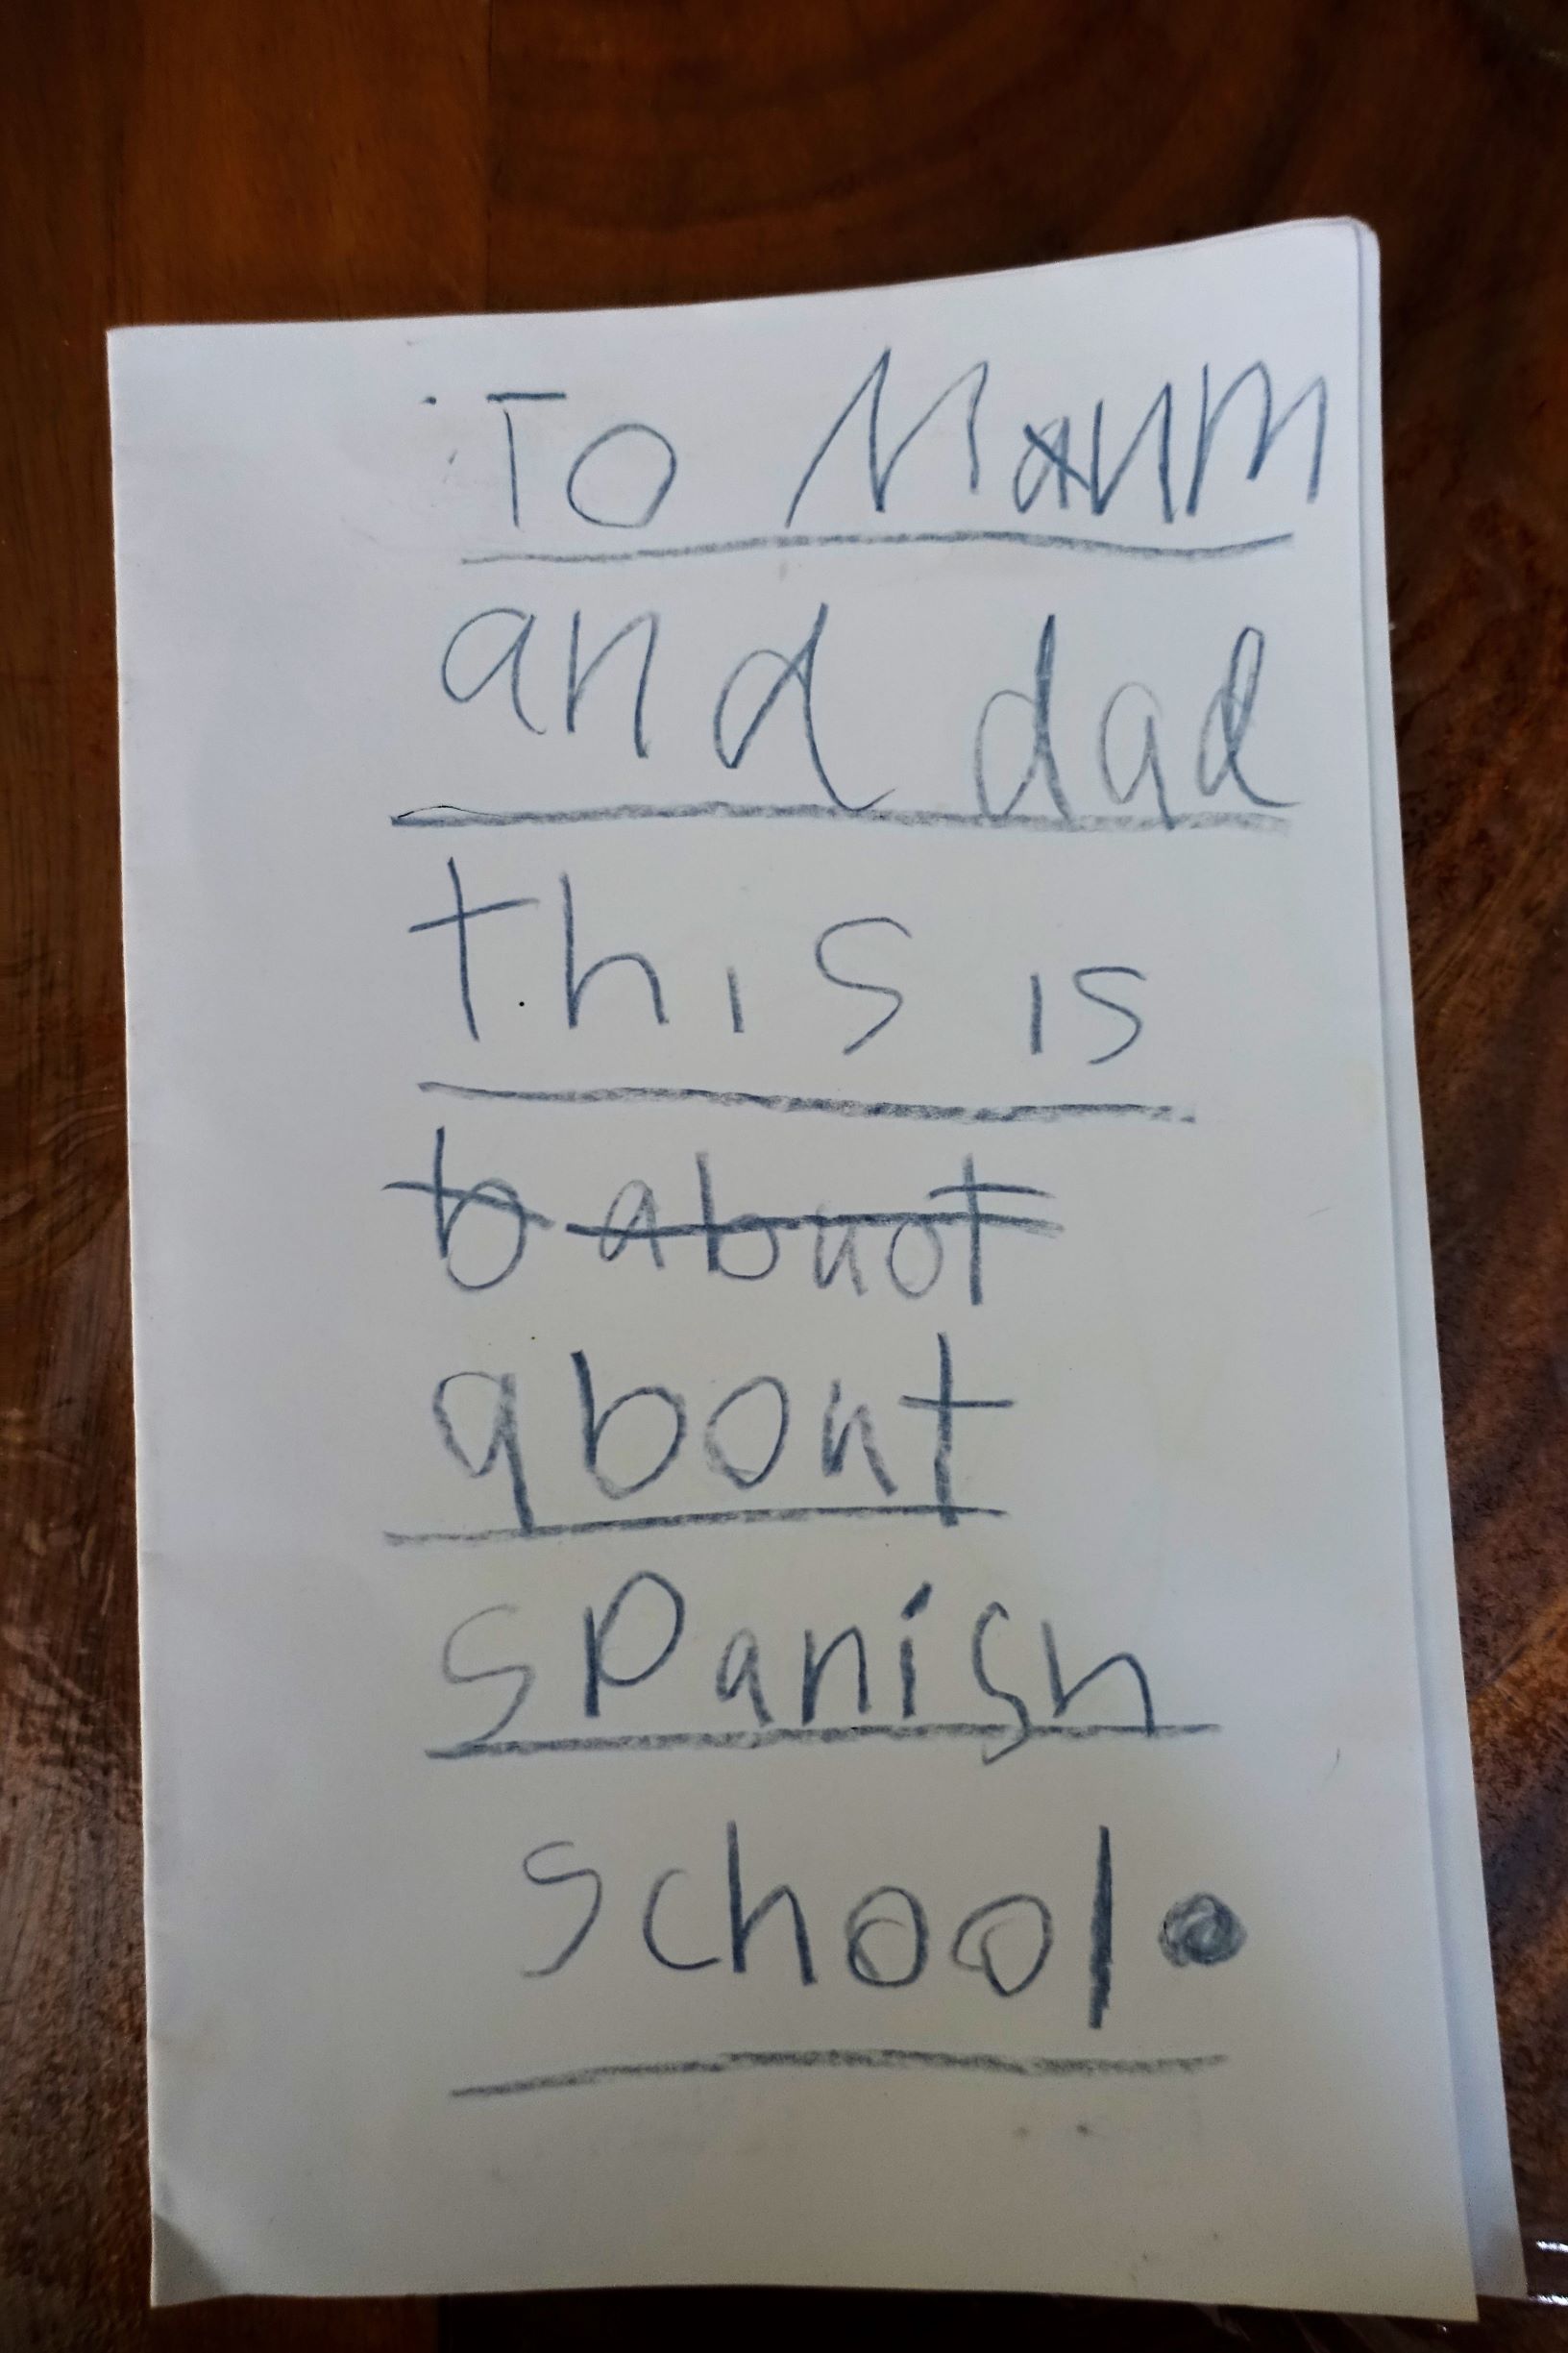 To Mum
and dad
this is
b abuot
about
spanish
school.